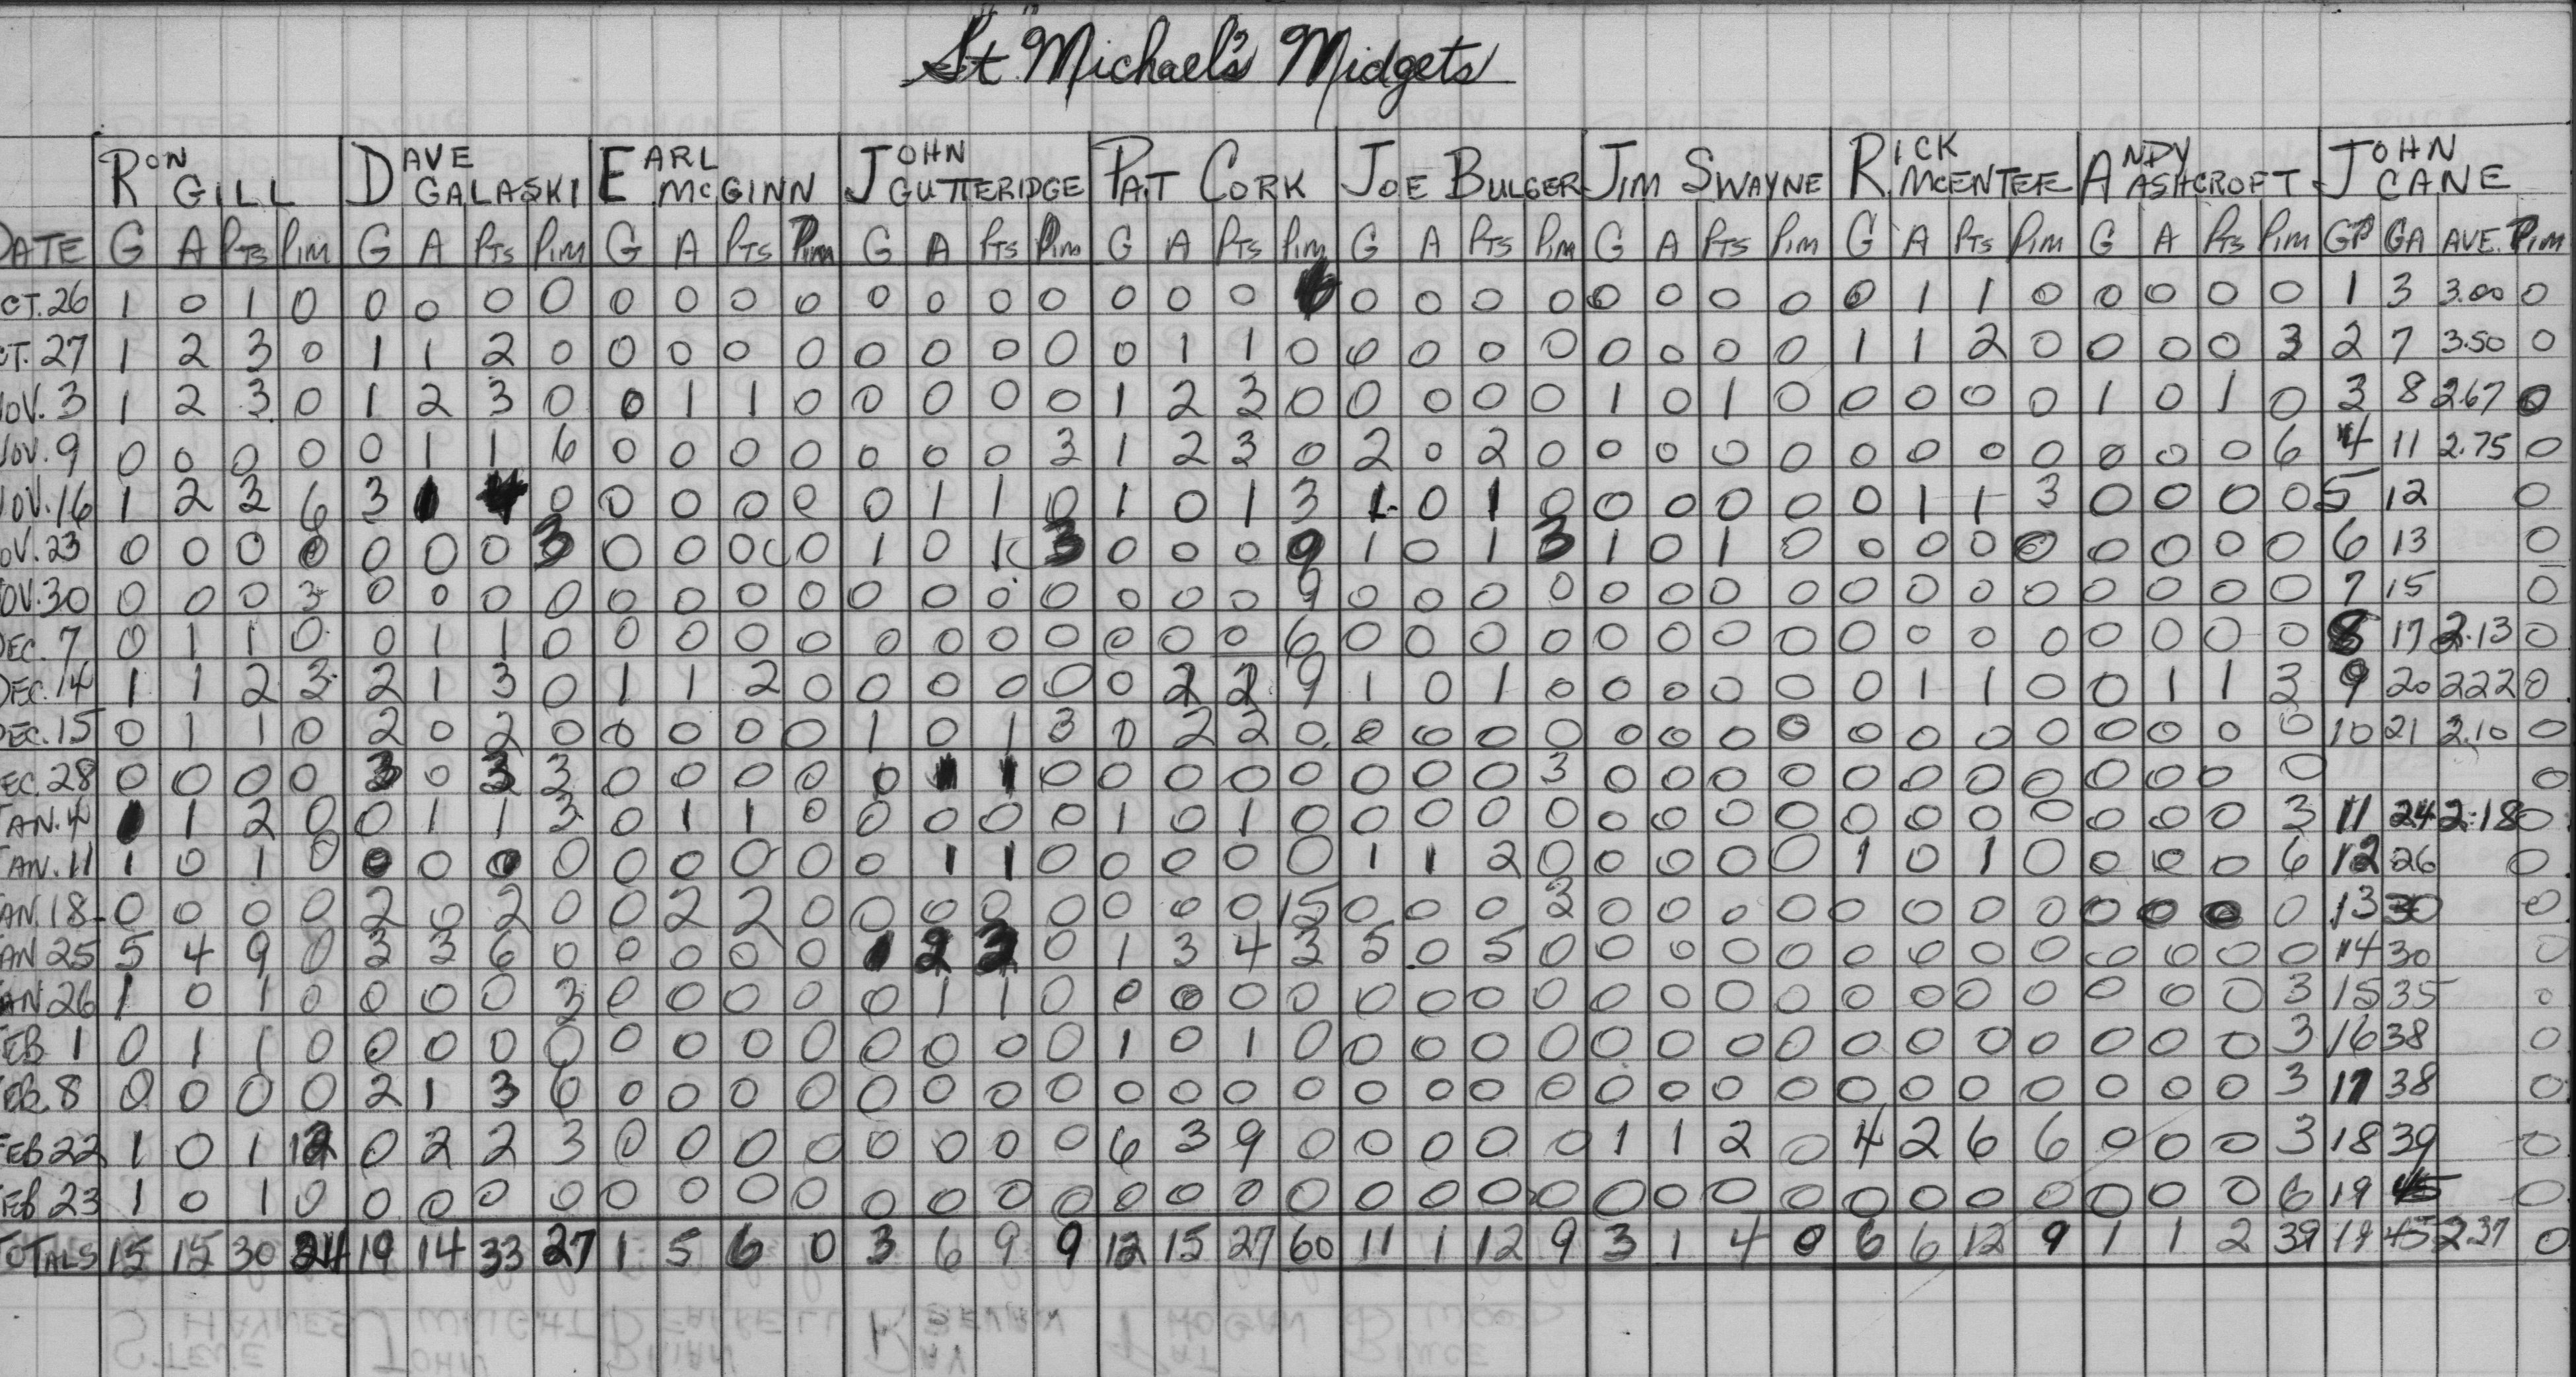 St. Michael's Midgets
RON GILL DAVE GALASKI EARL McGINN JOHN GUTTERIDGE PAT CORK JOE BULGER JIM SWAYNE RICK McENTEE ANDY ASHCROFT JOHN CANE
DATE G A PTS PIM G A PTS PIM G A PTS PIM G A PTS PIM G A PTS PIM G A PTS PIM G A PTS PIM G A PTS PIM G A PTS PIM GP GA AVE. PIM
CT. 26 1 0 1 0 0 0 0 0 0 0 0 0 0 0 0 0 0 0 0 6 0 0 0 0 0 0 0 0 0 1 1 0 0 0 0 0 1 3 3.00 0
CT. 27 1 2 3 0 1 1 2 0 0 0 0 0 0 0 0 0 0 1 1 0 0 0 0 0 0 0 0 0 1 1 2 0 0 0 0 3 2 7 3.50 0
NOV. 3 1 2 3 0 1 2 3 0 0 1 1 0 0 0 0 0 1 2 3 0 0 0 0 0 1 0 1 0 0 0 0 0 1 0 1 0 3 8 2.67 0
NOV. 9 0 0 0 0 0 1 1 6 0 0 0 0 0 0 0 3 1 2 3 0 2 0 2 0 0 0 0 0 0 0 0 0 0 0 0 6 4 11 2.75 0
NOV. 16 1 2 3 6 3 1 4 0 0 0 0 0 0 1 1 0 1 0 1 3 1 0 1 0 0 0 0 0 0 1 1 3 0 0 0 0 5 12 0
OV. 23 0 0 0 0 0 0 0 3 0 0 0 0 1 0 1 3 0 0 0 9 1 0 1 3 1 0 1 0 0 0 0 0 0 0 0 0 6 13 0
OV. 30 0 0 0 3 0 0 0 0 0 0 0 0 0 0 0 0 0 0 0 9 0 0 0 0 0 0 0 0 0 0 0 0 0 0 0 0 7 15 0
DEC. 7 0 1 1 0 0 1 1 0 0 0 0 0 0 0 0 0 0 0 0 6 0 0 0 0 0 0 0 0 0 0 0 0 0 0 0 0 8 17 2.13 0
DEC. 14 1 1 2 3 2 1 3 0 1 1 2 0 0 0 0 0 0 2 2 9 1 0 1 0 0 0 0 0 0 1 1 0 0 1 1 3 9 20 222 0
DEC. 15 0 1 1 0 2 0 2 0 0 0 0 0 1 0 1 3 0 2 2 0 0 0 0 0 0 0 0 0 0 0 0 0 0 0 0 0 10 21 2.10 0
EC. 28 0 0 0 0 3 0 3 3 0 0 0 0 0 1 1 0 0 0 0 0 0 0 0 3 0 0 0 0 0 0 0 0 0 0 0 0 0
JAN. 4 1 1 2 0 0 1 1 3 0 1 1 0 0 0 0 0 1 0 1 0 0 0 0 0 0 0 0 0 0 0 0 0 0 0 0 3 11 24 2.18 0
JAN. 11 1 0 1 0 0 0 0 0 0 0 0 0 0 1 1 0 0 0 0 0 1 1 2 0 0 0 0 0 1 0 1 0 0 0 0 6 12 26 0
AN. 18 0 0 0 0 2 0 2 0 0 2 2 0 0 0 0 0 0 0 0 15 0 0 0 3 0 0 0 0 0 0 0 0 0 0 0 0 13 30 0
AN 25 5 4 9 0 3 3 6 0 0 0 0 0 1 2 3 0 1 3 4 3 5 0 5 0 0 0 0 0 0 0 0 0 0 0 0 0 14 30 0
AN 26 1 0 1 0 0 0 0 3 0 0 0 0 0 1 1 0 0 0 0 0 0 0 0 0 0 0 0 0 0 0 0 0 0 0 0 3 15 35 0
FEB 1 0 1 1 0 0 0 0 0 0 0 0 0 0 0 0 0 1 0 1 0 0 0 0 0 0 0 0 0 0 0 0 0 0 0 0 3 16 38 0
FEB. 8 0 0 0 0 2 1 3 6 0 0 0 0 0 0 0 0 0 0 0 0 0 0 0 0 0 0 0 0 0 0 0 0 0 0 0 3 17 38 0
FEB 22 1 0 1 12 0 2 2 3 0 0 0 0 0 0 0 0 6 3 9 0 0 0 0 0 1 1 2 0 4 2 6 6 0 0 0 3 18 39 0
FEB 23 1 0 1 0 0 0 0 0 0 0 0 0 0 0 0 0 0 0 0 0 0 0 0 0 0 0 0 0 0 0 0 0 0 0 0 6 19 45 0
TOTALS 15 15 30 24 19 14 33 27 1 5 6 0 3 6 9 9 12 15 27 60 11 1 12 9 3 1 4 0 6 6 12 9 1 1 2 39 19 45 2.37 0